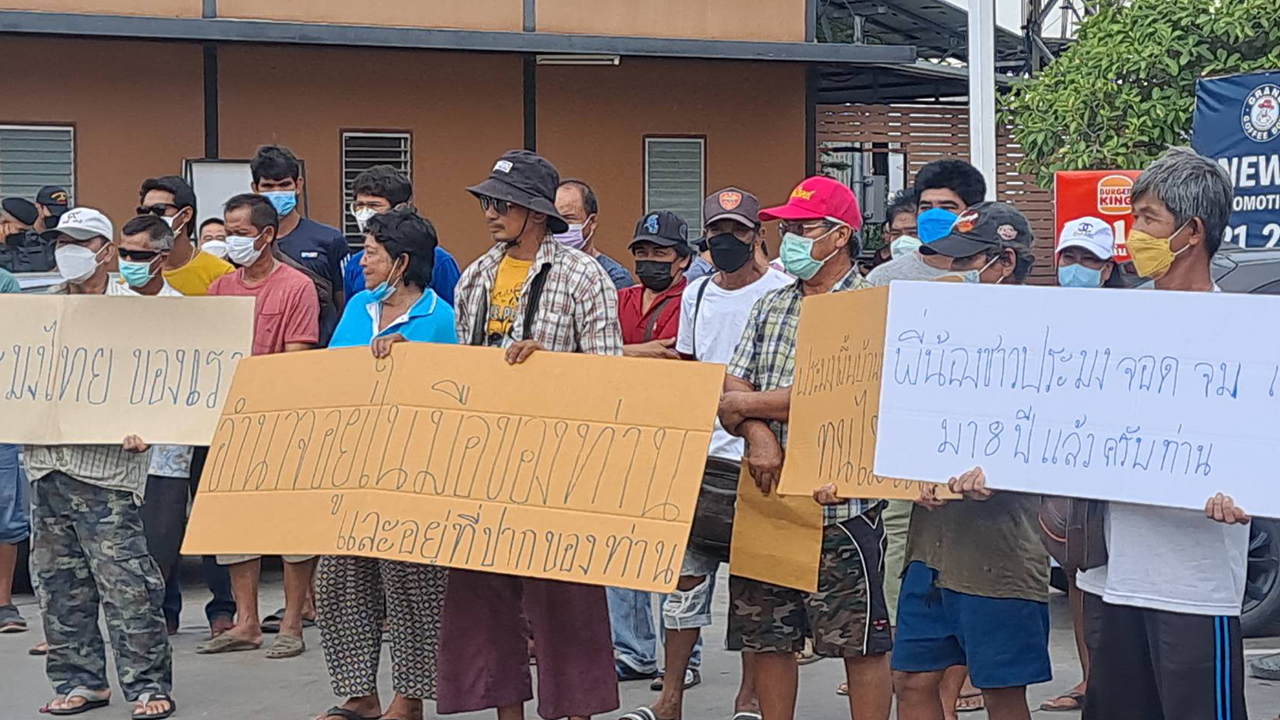 ะมงไทย ของเรา
อำนาจอยู่ในมือของท่าน
และอยู่ที่ปากของท่าน
ประมงพื้นบ้าน
ทนไม่
พี่น้องชาวประมงจอด จม
มา 8 ปีแล้วครับท่าน
BURGER
KING
NEW